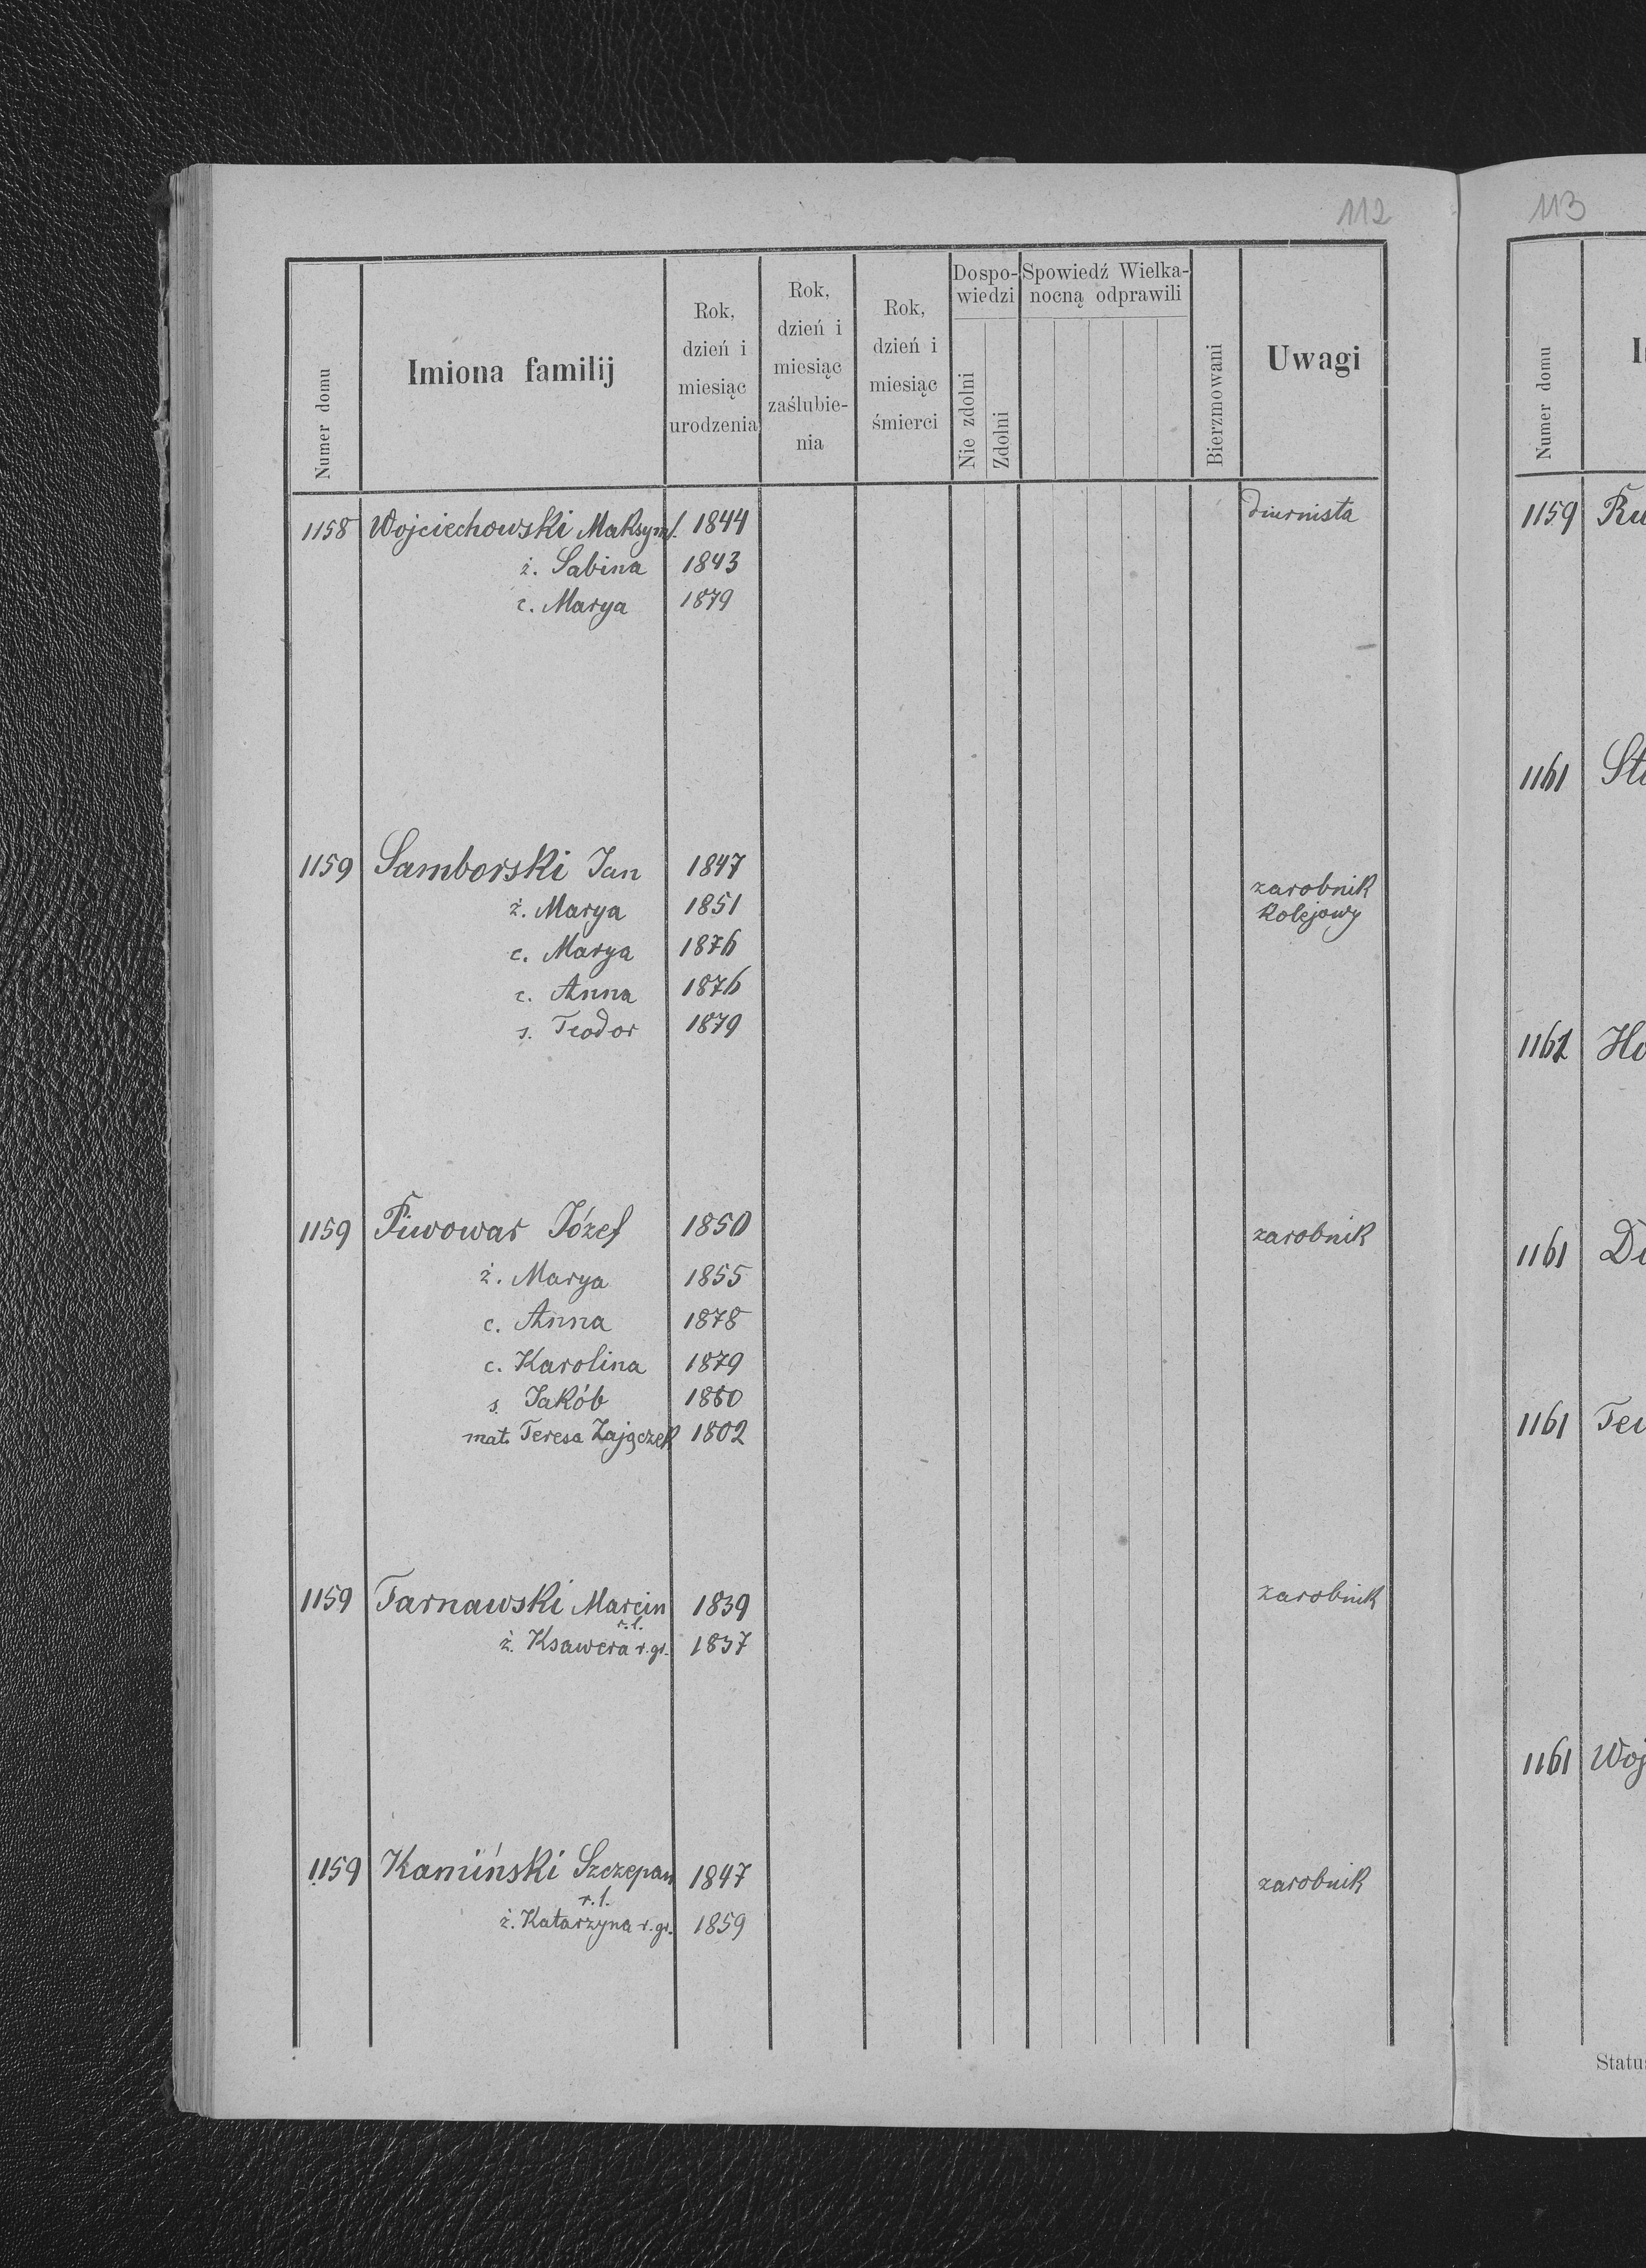 112
Numer domu
Imiona familij
Rok,
dzień i
miesiąc
urodzenia
Rok,
dzień i
miesiąc
zaślubie-
nia
Rok,
dzień i
miesiąc
śmierci
Dospo-
wiedzi
Nie zdolni
Zdolni
Spowiedź Wielka-
nocną odprawili
Bierzmowani
Uwagi
1158 Wojciechowski Maksyml. 1844 Diurnista
ż. Sabina 1843
c. Marya 1879
1159 Samborski Jan 1847 zarobnik
kolejowy
ż. Marya 1851
c. Marya 1876
c. Anna 1876
s. Teodor 1879
1159 Piwowar Józef 1850 zarobnik
ż. Marya 1855
c. Anna 1878
c. Karolina 1879
s. Jakób
mat. Teresa Zajączek 1802
1159 Tarnawski Marcin 1839 zarobnik
r.l.
ż. Ksawera r.gr. 1837
1159 Kamiński Szczepan 1847 zarobnik
r.l.
ż. Katarzyna r.gr. 1859
113
Numer domu
I
1159 Ru
1161 St
1161 Di
1161
1161 Woj
Status